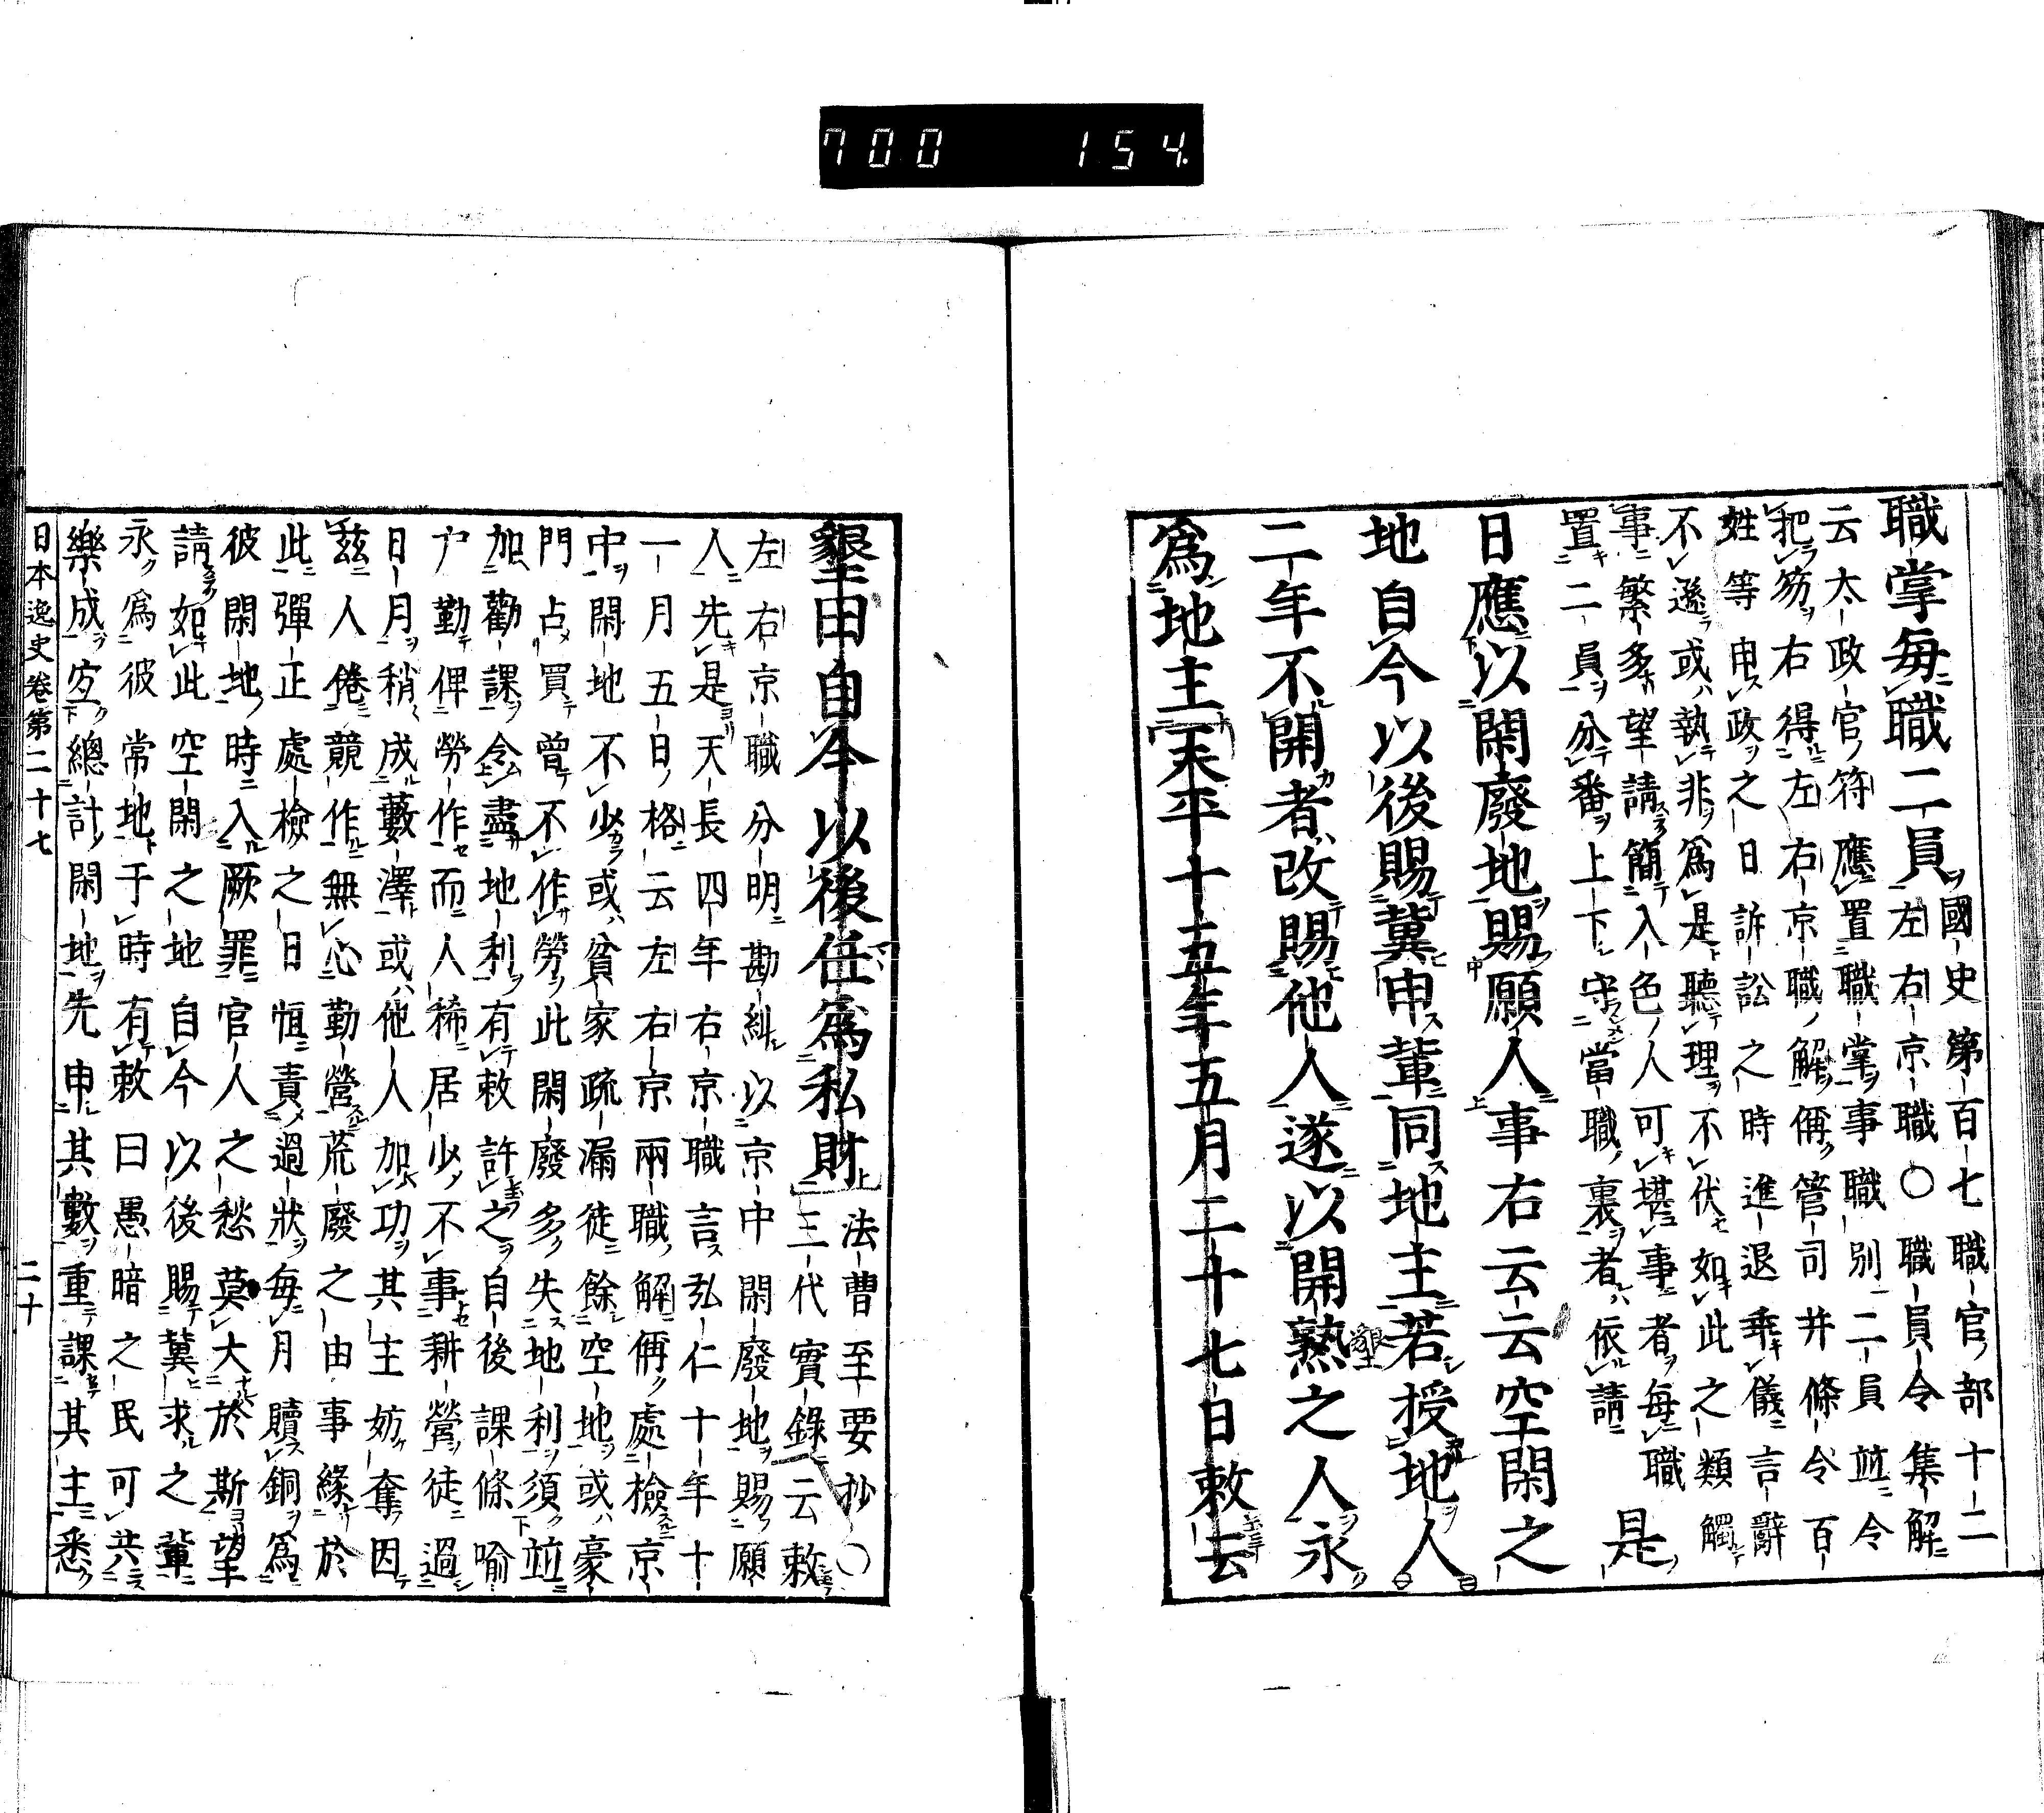 700 154
職掌毎職二員國史第百七職官部十二
左右京職〇職員令集解
云太政官符應置職掌事職別二員並令
把笏右得左右京職解偁管司并條令百
姓等申政之日訴訟之時進退乖儀言辭
不遜或執非爲是聽理不伏如此之類觸
事繁多望請簡入色人可堪事者毎職
置二員分番上下守當職裏者依請
是
日應以閑廢地賜願人事右云云空閑之
地自今以後賜冀申輩同地主若授地人
二年不開者改賜他人遂以開熟之人永
墾
爲地主天平十五年五月二十七日敕云
墾田自今以後任爲私財法曹至要抄〇
三代實錄云敕
左右京職分明勘糾以京中閑廢地賜願
人先是天長四年右京職言弘仁十年十
一月五日格云左右京兩職解偁處檢京
中閑地不少或貧家疏漏徒餘空地或豪
門占買曾不作勞此閑廢多失地利須並
加勸課令盡地利有敕許之自後課條喩
戸勤俾勞作而人稀居少不事耕營徒過
日月稍成藪澤或他人加功其主妨奪因
茲人倦競作無心勤營荒廢之由事緣於
此彈正處檢之日恒責過狀毎月贖銅爲
彼閑地時入厥罪官人之愁莫大於斯望
請如此空閑之地自今以後賜冀求之輩
永爲彼常地于時有敕曰愚暗之民可共
樂成宜總計閑地先申其數重課其主悉
日本逸史卷第二十七 二十